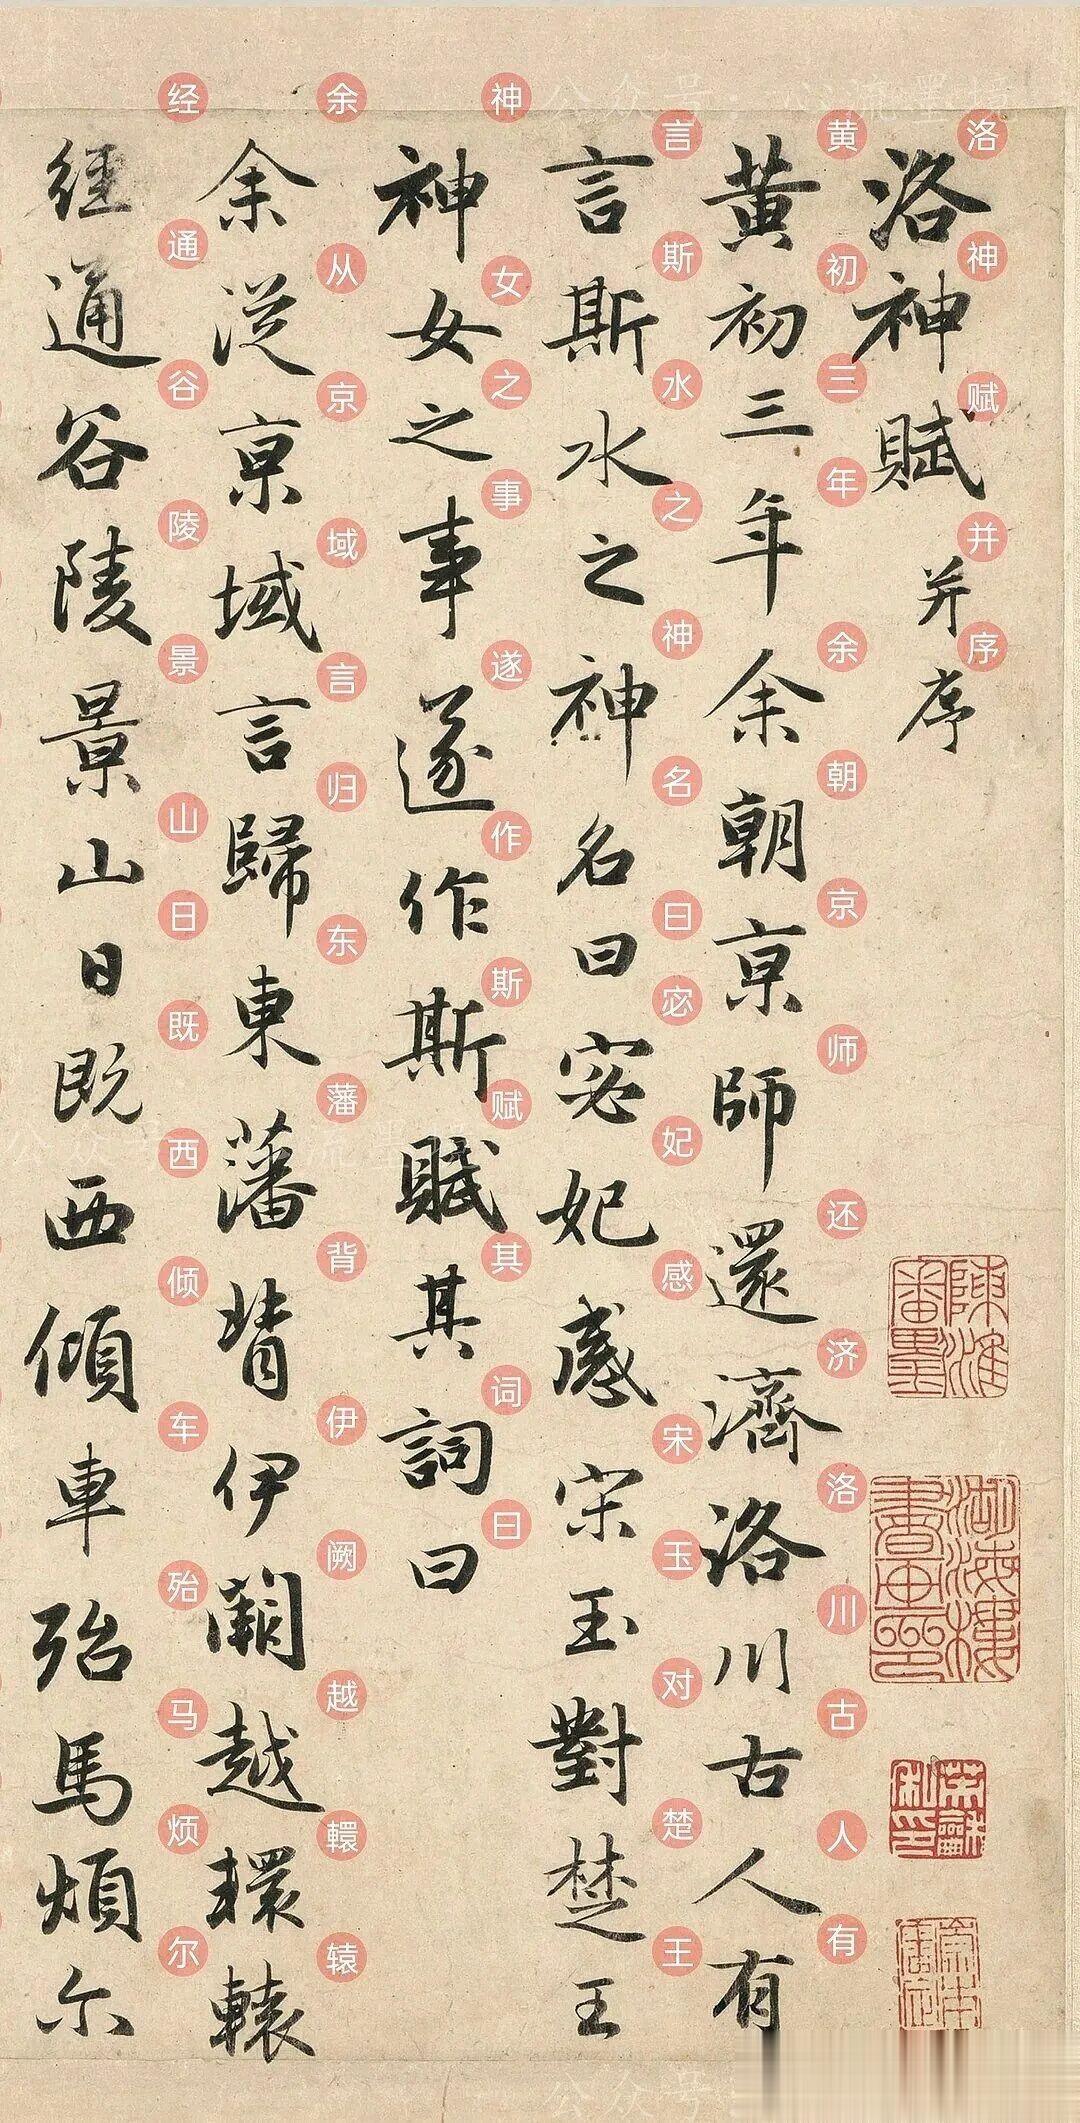 洛神賦并序
黄初三年余朝京師還濟洛川古人有
言斯水之神名曰宓妃感宋玉對楚王
神女之事遂作斯賦其詞曰
余從京域言歸東藩背伊闕越轘轅
經通谷陵景山日既西傾車殆馬煩尒
洛神赋并序
黄初三年余朝京师还济洛川古人有
言斯水之神名曰宓妃感宋玉对楚王
神女之事遂作斯赋其词曰
余从京域言归东藩背伊阙越轘辕
经通谷陵景山日既西倾车殆马烦尔
陳淮
湖海樓
公众号
公众号
公众号